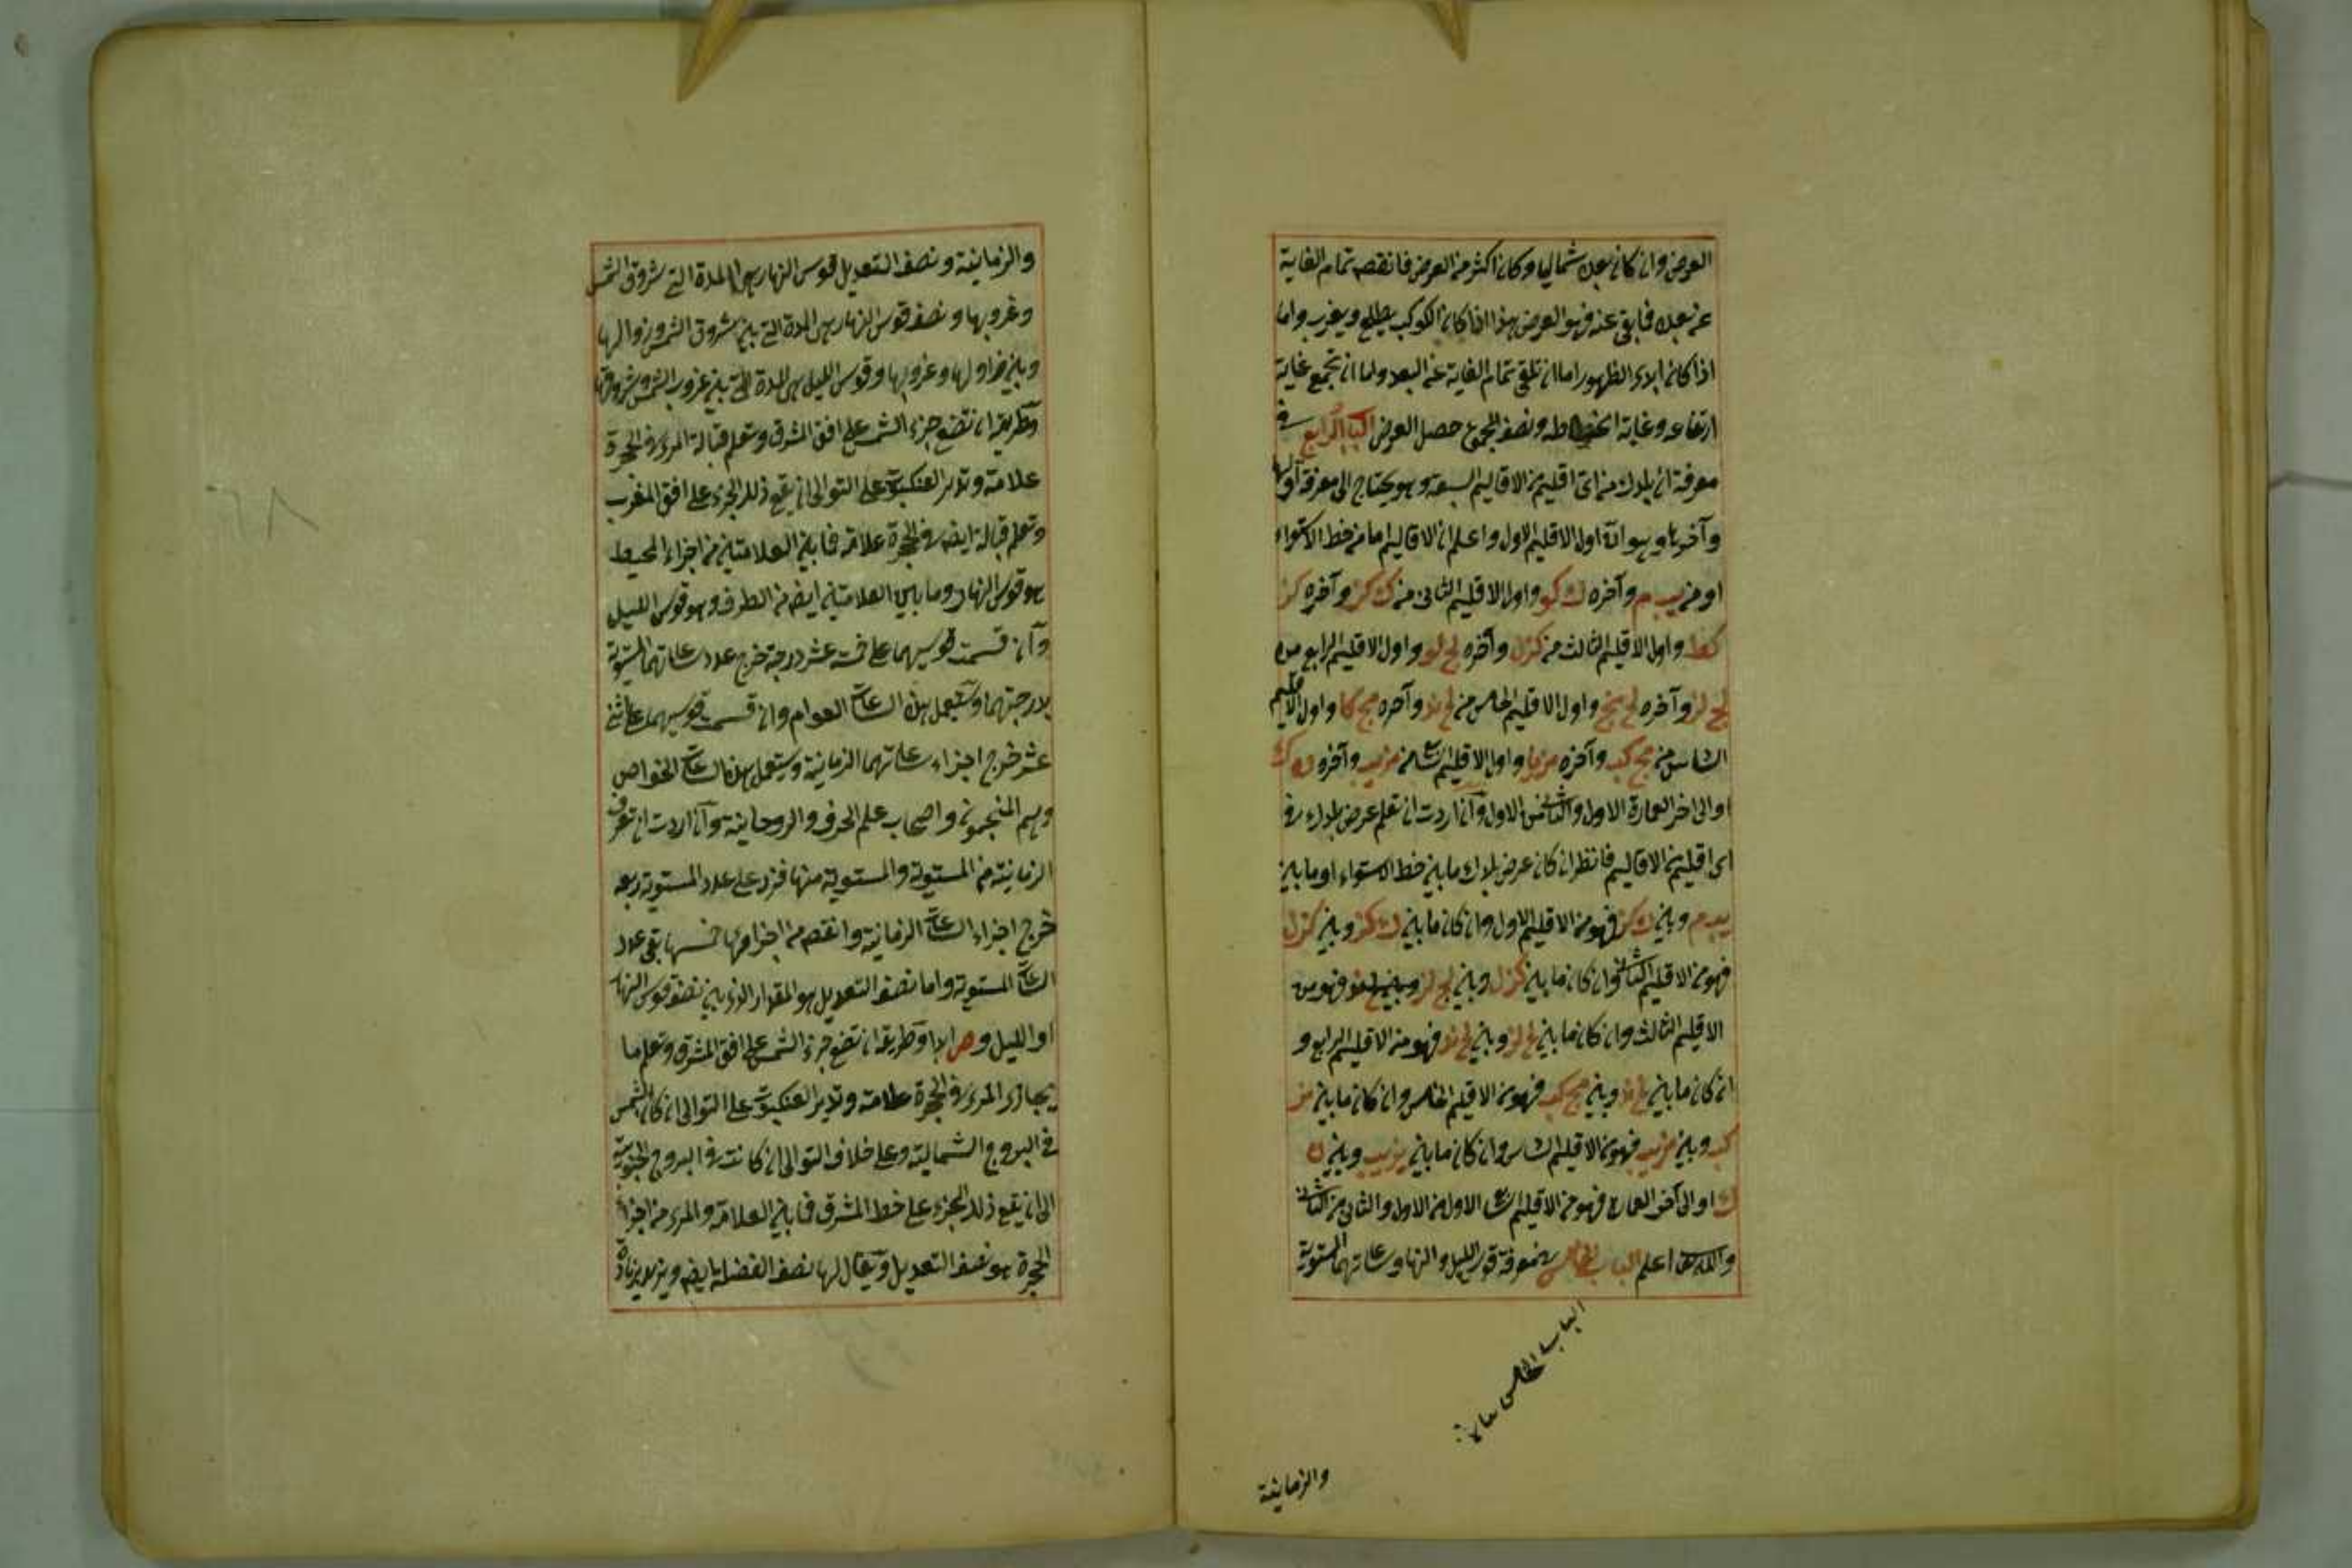 العرض وان كان بعده شماليا وكان اكثر من العرض فانقصه تمام الغاية
عن بعده فما بقى عنه فهو العرض هذا اذا كان الكوكب يطلع ويغرب واما
اذا كان ابدى الظهور اما ان تلقى تمام الغاية عن البعد واما ان تجمع غاية
ارتفاعه وغاية انخفاطه ونصف المجموع حصل العرض الباب الرابع فى
معرفة ان بلدك من اى اقليم من الاقاليم السبعة وهو يحتاج الى معرفة اولها
وآخرها وهو ان اول الاقليم الاول واعلم ان الاقاليم اما من خط الاستواء
او من يب م وآخره ك كو واول الاقليم الثانى من ك كز وآخره كز
كط واول الاقليم الثالث من كز ل وآخره لج لو واول الاقليم الرابع من
لج لز وآخره لح نج واول الاقليم الخامس من لح ند وآخره مج كا واول الاقليم
السادس من مج كب وآخره مز يا واول الاقليم السابع من مز يب وآخره ن ك
او الى اخر العمارة الاول والثانى من الاول وان اردت ان تعلم عرض بلدك فى
اى اقليم من الاقاليم فانظر ان كان عرض بلدك ما بين خط الاستواء او ما بين
يب م وبين ك كز فهو من الاقليم الاول وان كان ما بين ك كز وبين كز ل
فهو من الاقليم الثانى وان كان ما بين كز ل وبين لج لز فهو من
الاقليم الثالث وان كان ما بين لج لز وبين لح ند فهو من الاقليم الرابع و
ان كان ما بين لح ند وبين مج كب فهو من الاقليم الخامس وان كان ما بين مز
كب وبين مز يب فهو من الاقليم السادس وان كان ما بين مز يب وبين ن
ك او الى آخر العمارة فهو من الاقليم السابع الاول من الاول والثانى من الثانى
والله تعالى اعلم الباب الخامس فى معرفة قوس الليل والنهار وساعاتهما المستوية
الباب الخامس
والزمانية
والزمانية ونصف التعديل قوس النهار هى المدة التى شروق الشمس
وغروبها ونصف قوس النهار هى المدة التى بين شروق الشمس وزوالها
وبين زوالها وغروبها وقوس الليل هى المدة التى بين غروب الشمس وشروقها
وطريقه ان تضع جزء الشمس على افق المشرق وتعلم قبالة المرى فى الحجرة
علامة وتدير العنكبوت على التوالى ان يقع ذلك الجزء على افق المغرب
وتعلم قبالة ايضا فى الحجرة علامة فما بين العلامتين من اجزاء المحيط
هو قوس النهار وما بين العلامتين ايضا من الطرف وهو قوس الليل
وان قسمت قوسيهما على خمسة عشر درجة خرج عدد ساعاتهما المستوية
لدرجتهما وتستعمل هذه الساعات العوام وان قسمت قوسيهما على اثنى
عشر خرج اجزاء ساعاتهما الزمانية ويستعمل هذه الساعات الخواص
وهم المنجمون واصحاب علم الحرف والروحانية وان اردت ان تعرف
الزمانية من المستوية والمستوية منها فزد على عدد المستوية ربعه
خرج اجزاء الساعات الزمانية وانقص من اجزائها خمسها بقى عدد
الساعات المستوية واما نصف التعديل هو المقدار الذى بين نصف قوس النهار
او الليل و ص ابدا وطريقه ان تضع جزء الشمس على افق المشرق وتعلم ما
يحازى المرى فى الحجرة علامة وتدير العنكبوت على التوالى ان كان الشمس
فى البروج الشمالية وعلى خلاف التوالى ان كانت فى البروج الجنوبية
الى ان يقع ذلك الجزء على خط المشرق فما بين العلامة والمرى من اجزاء
الحجرة هو نصف التعديل ويقال لها نصف الفضلة ايضا ويزيد بزيادة